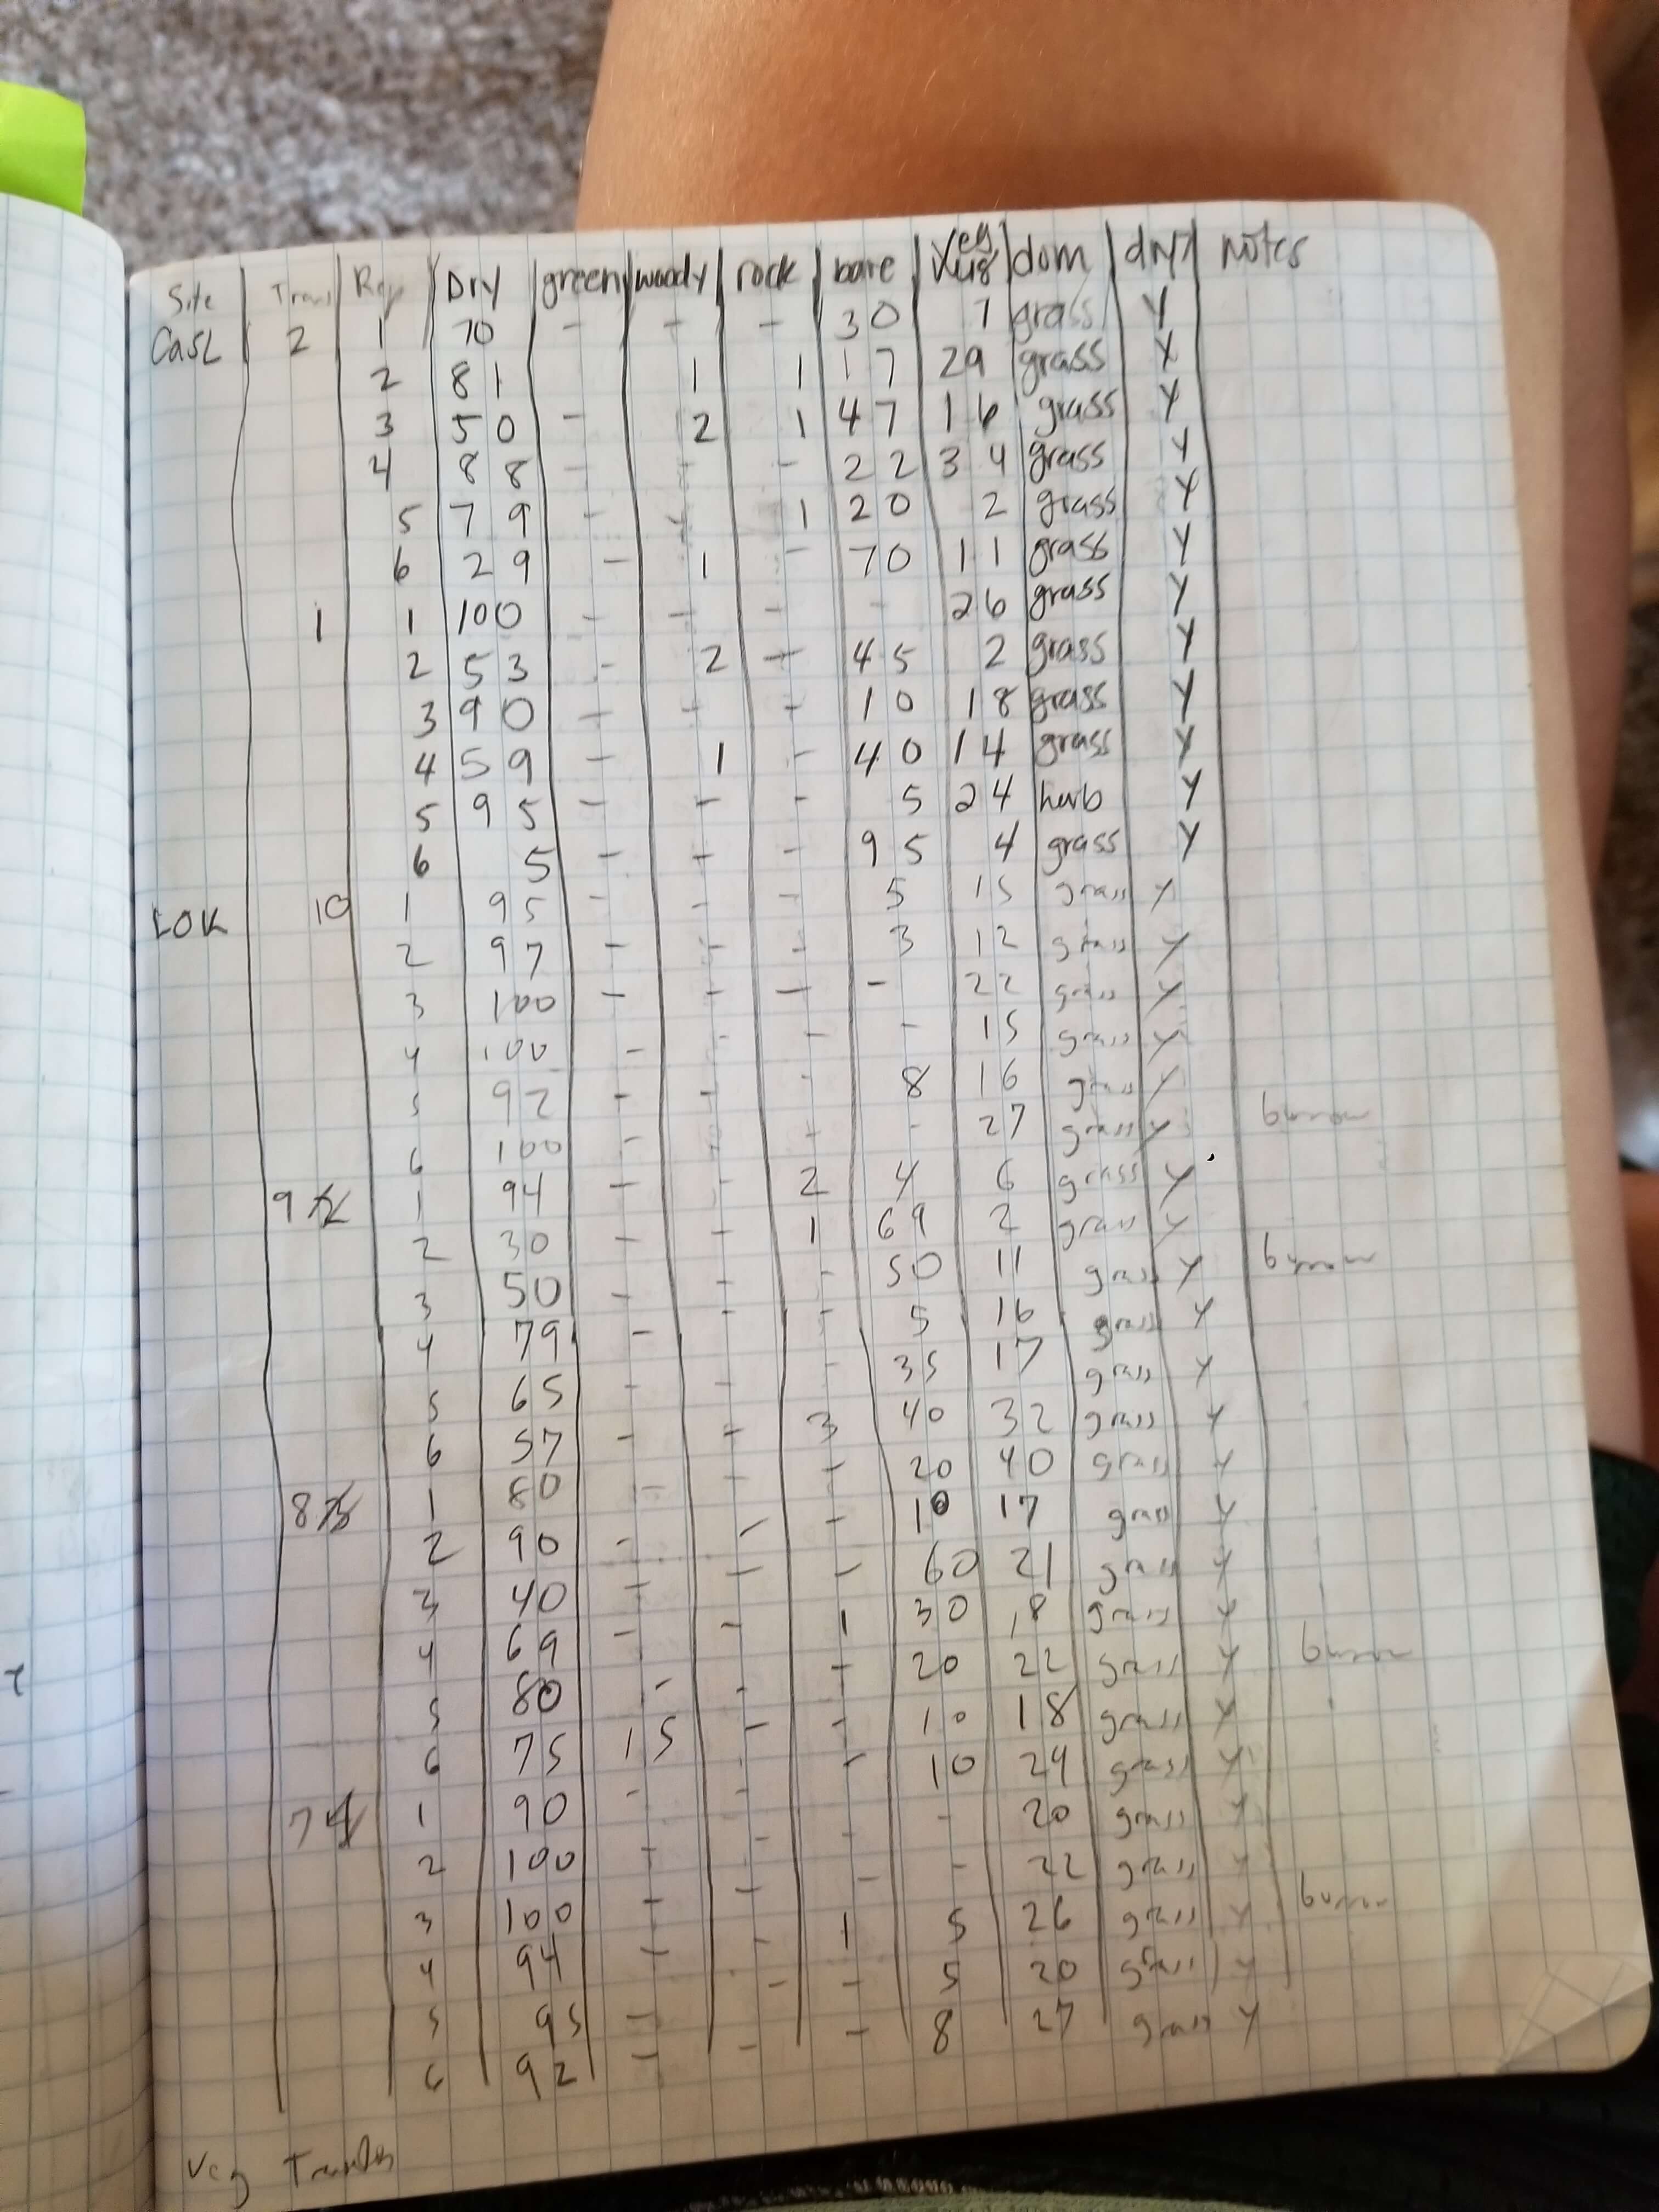 Site Trans Rep Dry green woody rock bare Veg dom dNT Notes
CaSL 2 1 70 - - - 30 7 grass Y
2 81 1 1 17 29 grass Y
3 50 - 2 1 47 16 grass Y
4 88 - - - 22 34 grass Y
5 79 - - 1 20 2 grass Y
6 29 - 1 - 70 11 grass Y
1 1 100 - - - - 26 grass Y
2 53 - 2 - 45 2 grass Y
3 90 - - - 10 18 grass Y
4 59 - 1 - 40 14 grass Y
5 95 - - - 5 24 herb Y
6 5 - - - 95 4 grass Y
LOK 10 1 95 - - - 5 15 grass Y
2 97 - - - 3 12 grass Y
3 100 - - - - 22 grass Y
4 100 - - - - 15 grass Y
5 92 - - - 8 16 grass Y
6 100 - - - - 27 grass Y burrow
9 1 94 - - 2 4 6 grass Y
2 30 - - 1 69 2 grass Y
3 50 - - - 50 11 grass Y burrow
4 79 - - - 5 16 grass Y
5 65 - - - 35 17 grass Y
6 57 - - 3 40 32 grass Y
8 1 80 - - - 20 40 grass Y
2 90 - - - 10 17 grass Y
3 40 - - - 60 21 grass Y
4 69 - - 1 30 18 grass Y
5 80 - - - 20 22 grass Y burrow
6 75 15 - - 10 18 grass Y
7 1 90 - - - 10 29 grass Y
2 100 - - - - 20 grass Y
3 100 - - - - 22 grass Y
4 94 - - 1 5 26 grass Y burrow
5 95 - - - 5 20 grass Y
6 92 - - - 8 27 grass Y
Veg